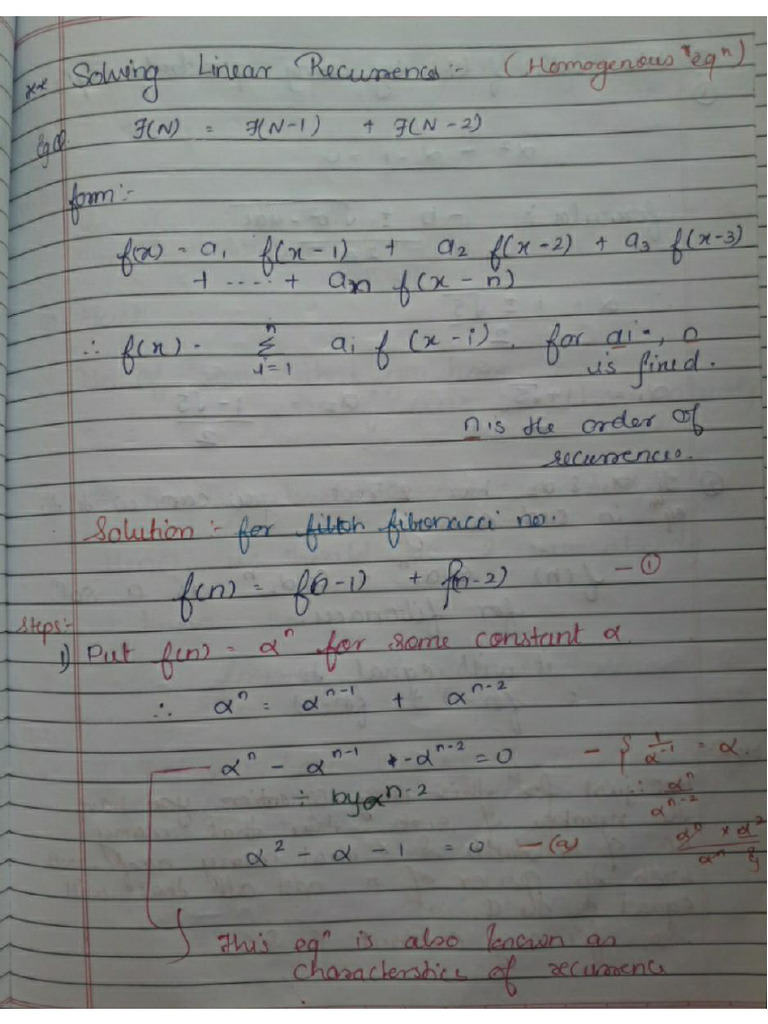 ** Solving Linear Recurrences :- (Homogenous eqⁿ)
eg①. F(N) = F(N-1) + F(N-2)
form:-
f(x) = a₁ f(x-1) + a₂ f(x-2) + a₃ f(x-3)
+ ....+ aₙ f(x-n)
∴ f(x) = n Σ i=1 aᵢ f(x-i), for aᵢ, n
is fixed.
n is the order of
recurrences.
Solution :- for fibonacci no.
f(n) = f(n-1) + f(n-2) - ①
Steps:-
1) Put f(n) = αⁿ for some constant α
∴ αⁿ = αⁿ⁻¹ + αⁿ⁻²
αⁿ - αⁿ⁻¹ - αⁿ⁻² = 0 - { 1/α⁻¹ = α.
÷ by αⁿ⁻² αⁿ/αⁿ⁻²
α² - α - 1 = 0 - (a) αⁿ × α²/αⁿ }
This eqⁿ is also known as
characterstics of recurrence